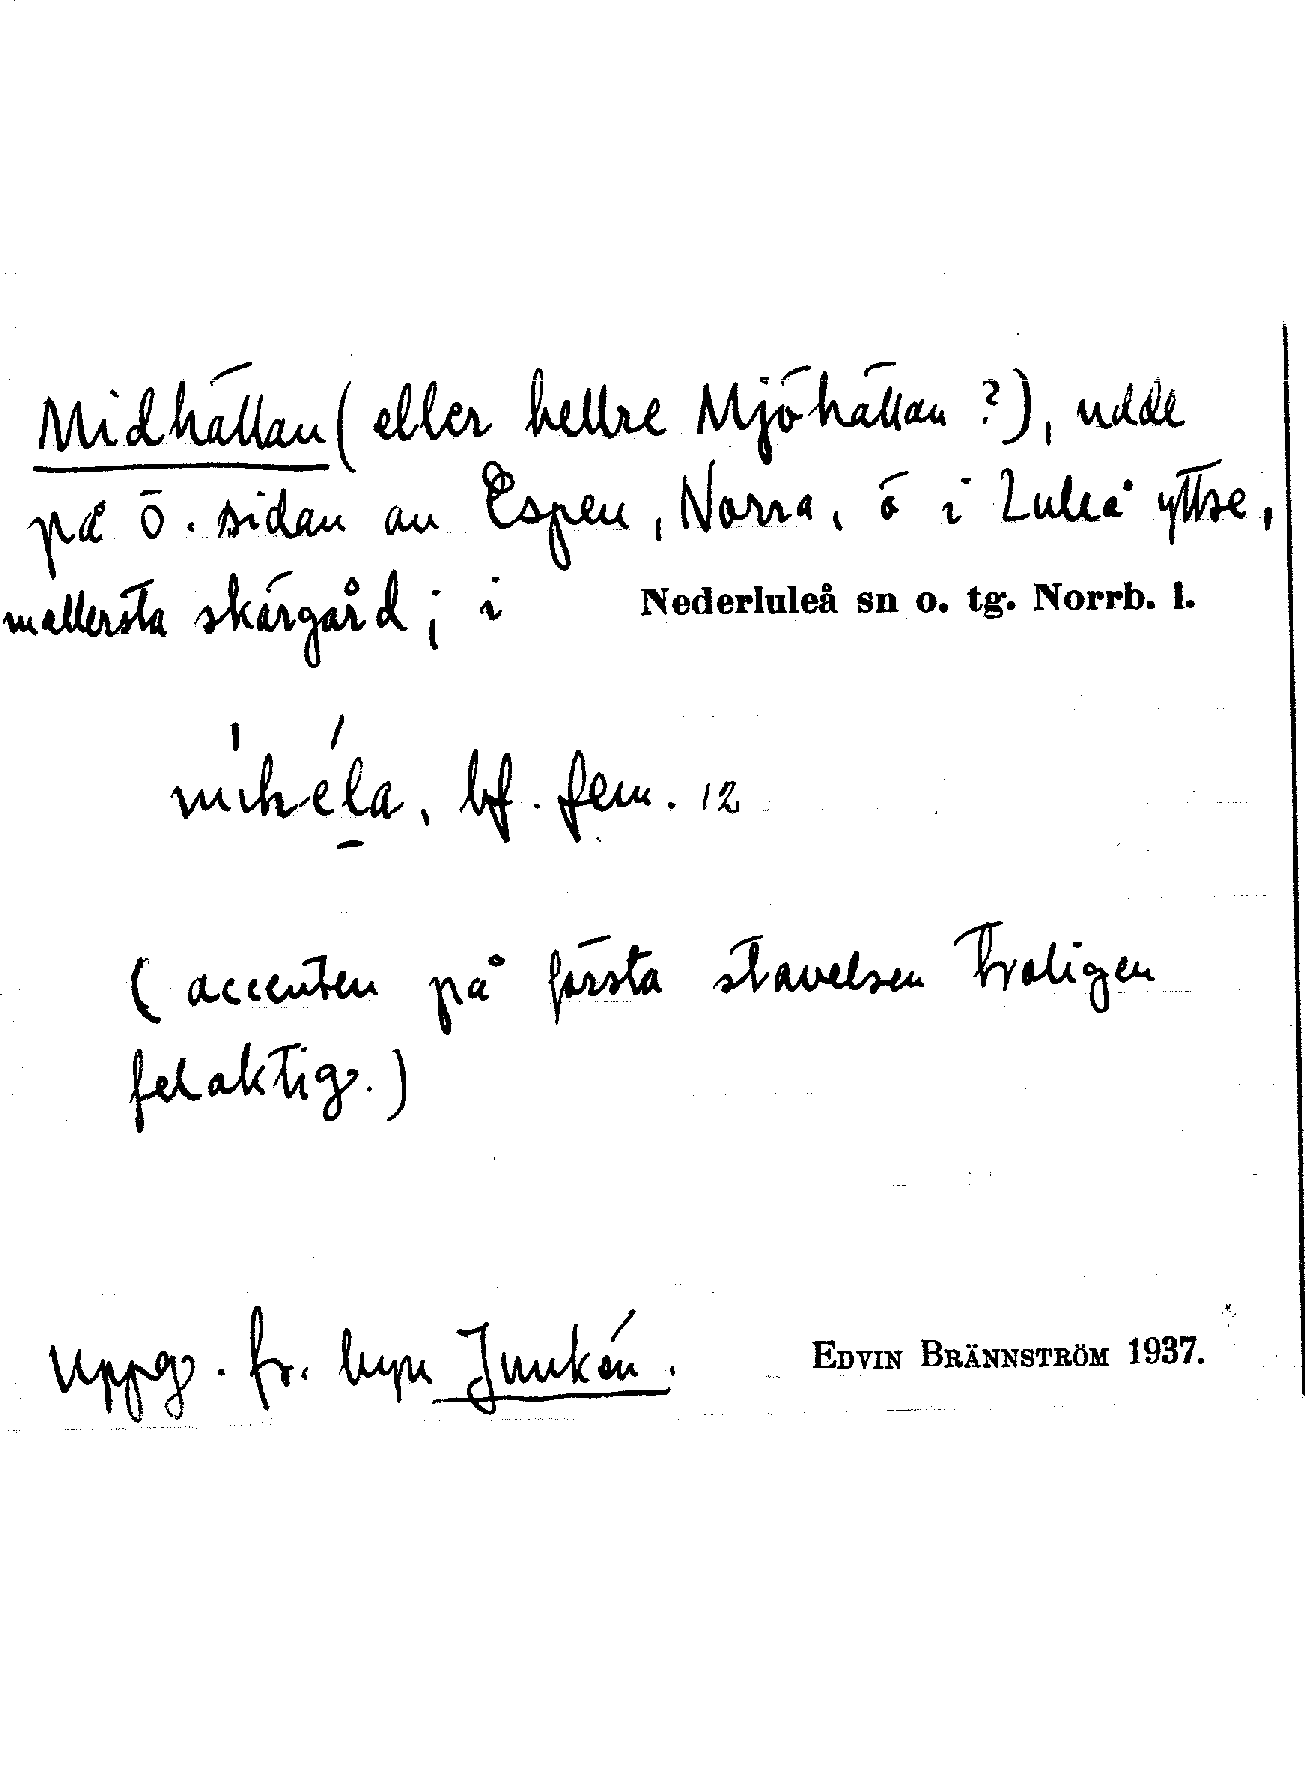 Midhällan (eller hellre Mjöhällan ?), udde
på ö. sidan av Espen, Norra, ö i Luleå yttre,
mellersta skärgård; i Nederluleå sn o. tg. Norrb. l.
bf. fem. 12
(accenten på första stavelsen troligen
felaktig.)
Uppg. fr. byn Junkön. EDVIN BRÄNNSTRÖM 1937.